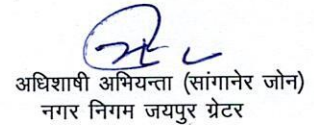 अधिशाषी अभियन्ता (सांगानेर जोन)
नगर निगम जयपुर ग्रेटर